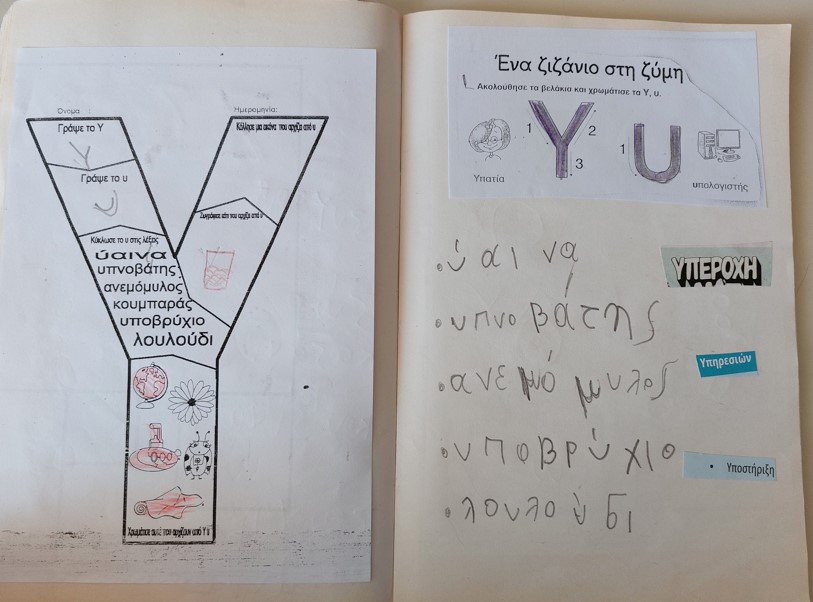 Όνομα
Ημερομηνία:
Γράψε το Υ
Υ
Γράψε το υ
υ
Κύκλωσε το υ στις λέξεις
ύαινα
υπνοβάτης
ανεμόμυλος
κουμπαράς
υποβρύχιο
λουλούδι
Κόλλησε μια εικόνα που αρχίζει από υ
Ζωγράφισε κάτι που αρχίζει από υ
Χρωμάτισε αυτά που αρχίζουν από Υ υ
Ένα ζιζάνιο στη ζύμη
Ακολούθησε τα βελάκια και χρωμάτισε τα Υ, υ.
1 Υ 2 3
1 υ
Υπατία
υπολογιστής
• ύαινα
ΥΠΕΡΟΧΗ
• υπνοβάτης
Υπηρεσιών
• ανεμόμυλος
• υποβρύχιο
• Υποστήριξη
• λουλούδι